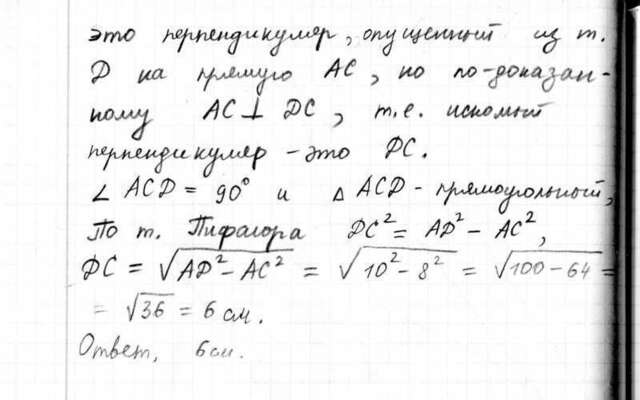 это перпендикуляр, опущенный из т.
D на прямую AC, но по-доказан-
ному AC ⊥ DC, т.е. искомый
перпендикуляр – это DC.
∠ ACD = 90° и △ ACD - прямоугольный,
По т. Пифагора DC² = AD² – AC²,
DC = √(AD² – AC²) = √(10² – 8²) = √(100 – 64) =
= √36 = 6 см.
Ответ, 6 см.